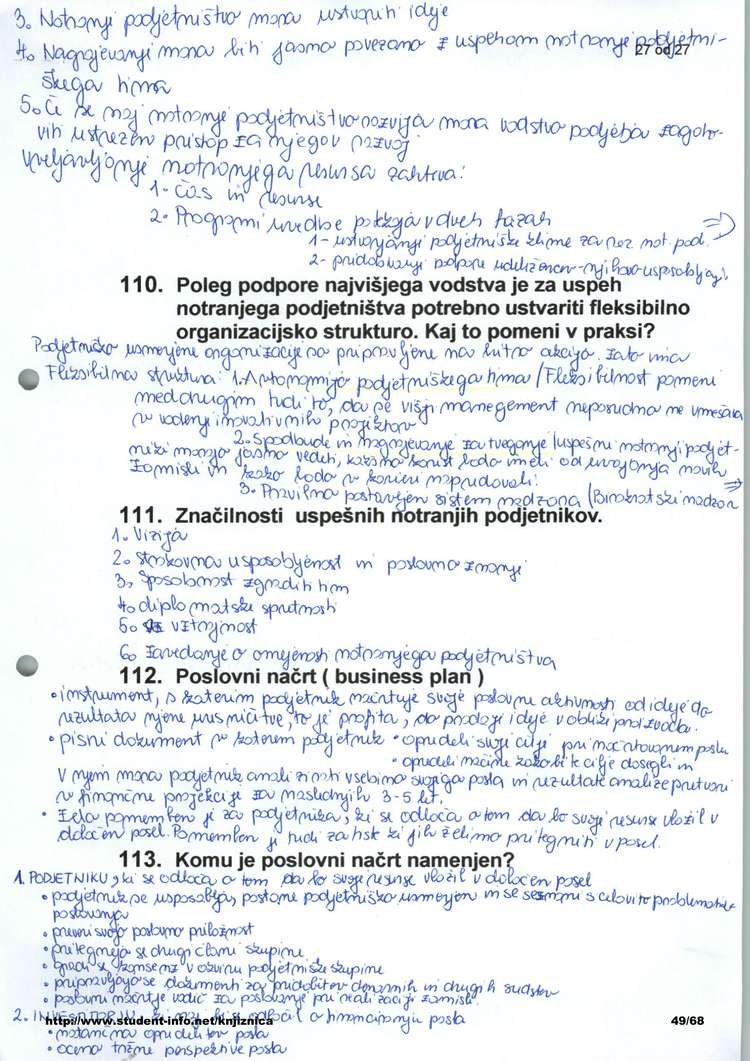 3. Notranje podjetništvo mora ustvariti ideje
4. Nagrajevanje mora biti jasno povezano z uspehom notranje podjetni-
27 od 27
škega tima
5. Če se naj notranje podjetništvo razvija mora vodstvo podjetja zagoto-
viti ustrezen pristop za njegov razvoj
Uveljavljanje notranjega resursa zahteva:
1- čas in resurse
2. Programi uvedbe poteka v dveh fazah
1- ustvarjanje podjetniške klime za raz. not. pod.
2- pridobivanje podpore udeležencev - njihovo usposablja.
110. Poleg podpore najvišjega vodstva je za uspeh
notranjega podjetništva potrebno ustvariti fleksibilno
organizacijsko strukturo. Kaj to pomeni v praksi?
Podjetniško usmerjene organizacije so pripravljene na hitro akcijo. Zato ima
Fleksibilna struktura: 1. Avtonomijo podjetniškega tima (Fleksibilnost pomeni
med drugim tudi to, da se višji management neposredno ne vmešava
v vodenje inovativnih projektov
2. Spodbude in nagrajevanje za tveganje (uspešni notranji podjet-
niki morajo jasno vedeti, kakšno korist bodo imeli od uvajanja novih
zamisli in kako bodo v karieri napredovali.
3. Pravilno postavljen sistem nadzora (Birokratski nadzor
111. Značilnosti uspešnih notranjih podjetnikov.
1. Vizija
2. strokovna usposobljenost in poslovno znanje
3. Sposobnost zgraditi tim
4. diplomatske spretnosti
5. vztrajnost
6. zavedanje o omejenosti notranjega podjetništva
112. Poslovni načrt ( business plan )
• instrument, s katerim podjetnik načrtuje svoje poslovne aktivnosti od ideje do
rezultata njene uresničitve, to je profita, do prodaji ideje v obliki proizvoda.
• pisni dokument v katerem podjetnik • opredeli svoje cilje pri načrtovanem poslu
• opredeli načine kako bi te cilje dosegli in
V njem mora podjetnik analizirati vsebino svojega posla in rezultate analize pretvori
v finančne projekcije za naslednjih 3-5 let.
• Zelo pomemben je za podjetnika, ki se odloča o tem da bo svoje resurse vložil v
določen posel. Pomemben je tudi za tiste ki jih želimo pritegniti v posel.
113. Komu je poslovni načrt namenjen?
1. PODJETNIKU, ki se odloča o tem da bo svoje resurse vložil v določen posel
• podjetnik se usposablja, postane podjetniško usmerjen in se seznani s celovito problematiko
poslovanja
• preveri svojo poslovno priložnost
• pritegnejo se drugi člani skupine
• gradi se konsenz v okviru podjetniške skupine
• pripravljajo se dokumenti za pridobitev denarnih in drugih sredstev
• poslovni načrt je vodič za poslovanje pri realizaciji zamisli
2. INVESTITORJU, ki naj bi se odločil o financiranju posla
http://www.student-info.net/knjiznica
49/68
• natančna opredelitev posla
• ocena tržne perspektive posla